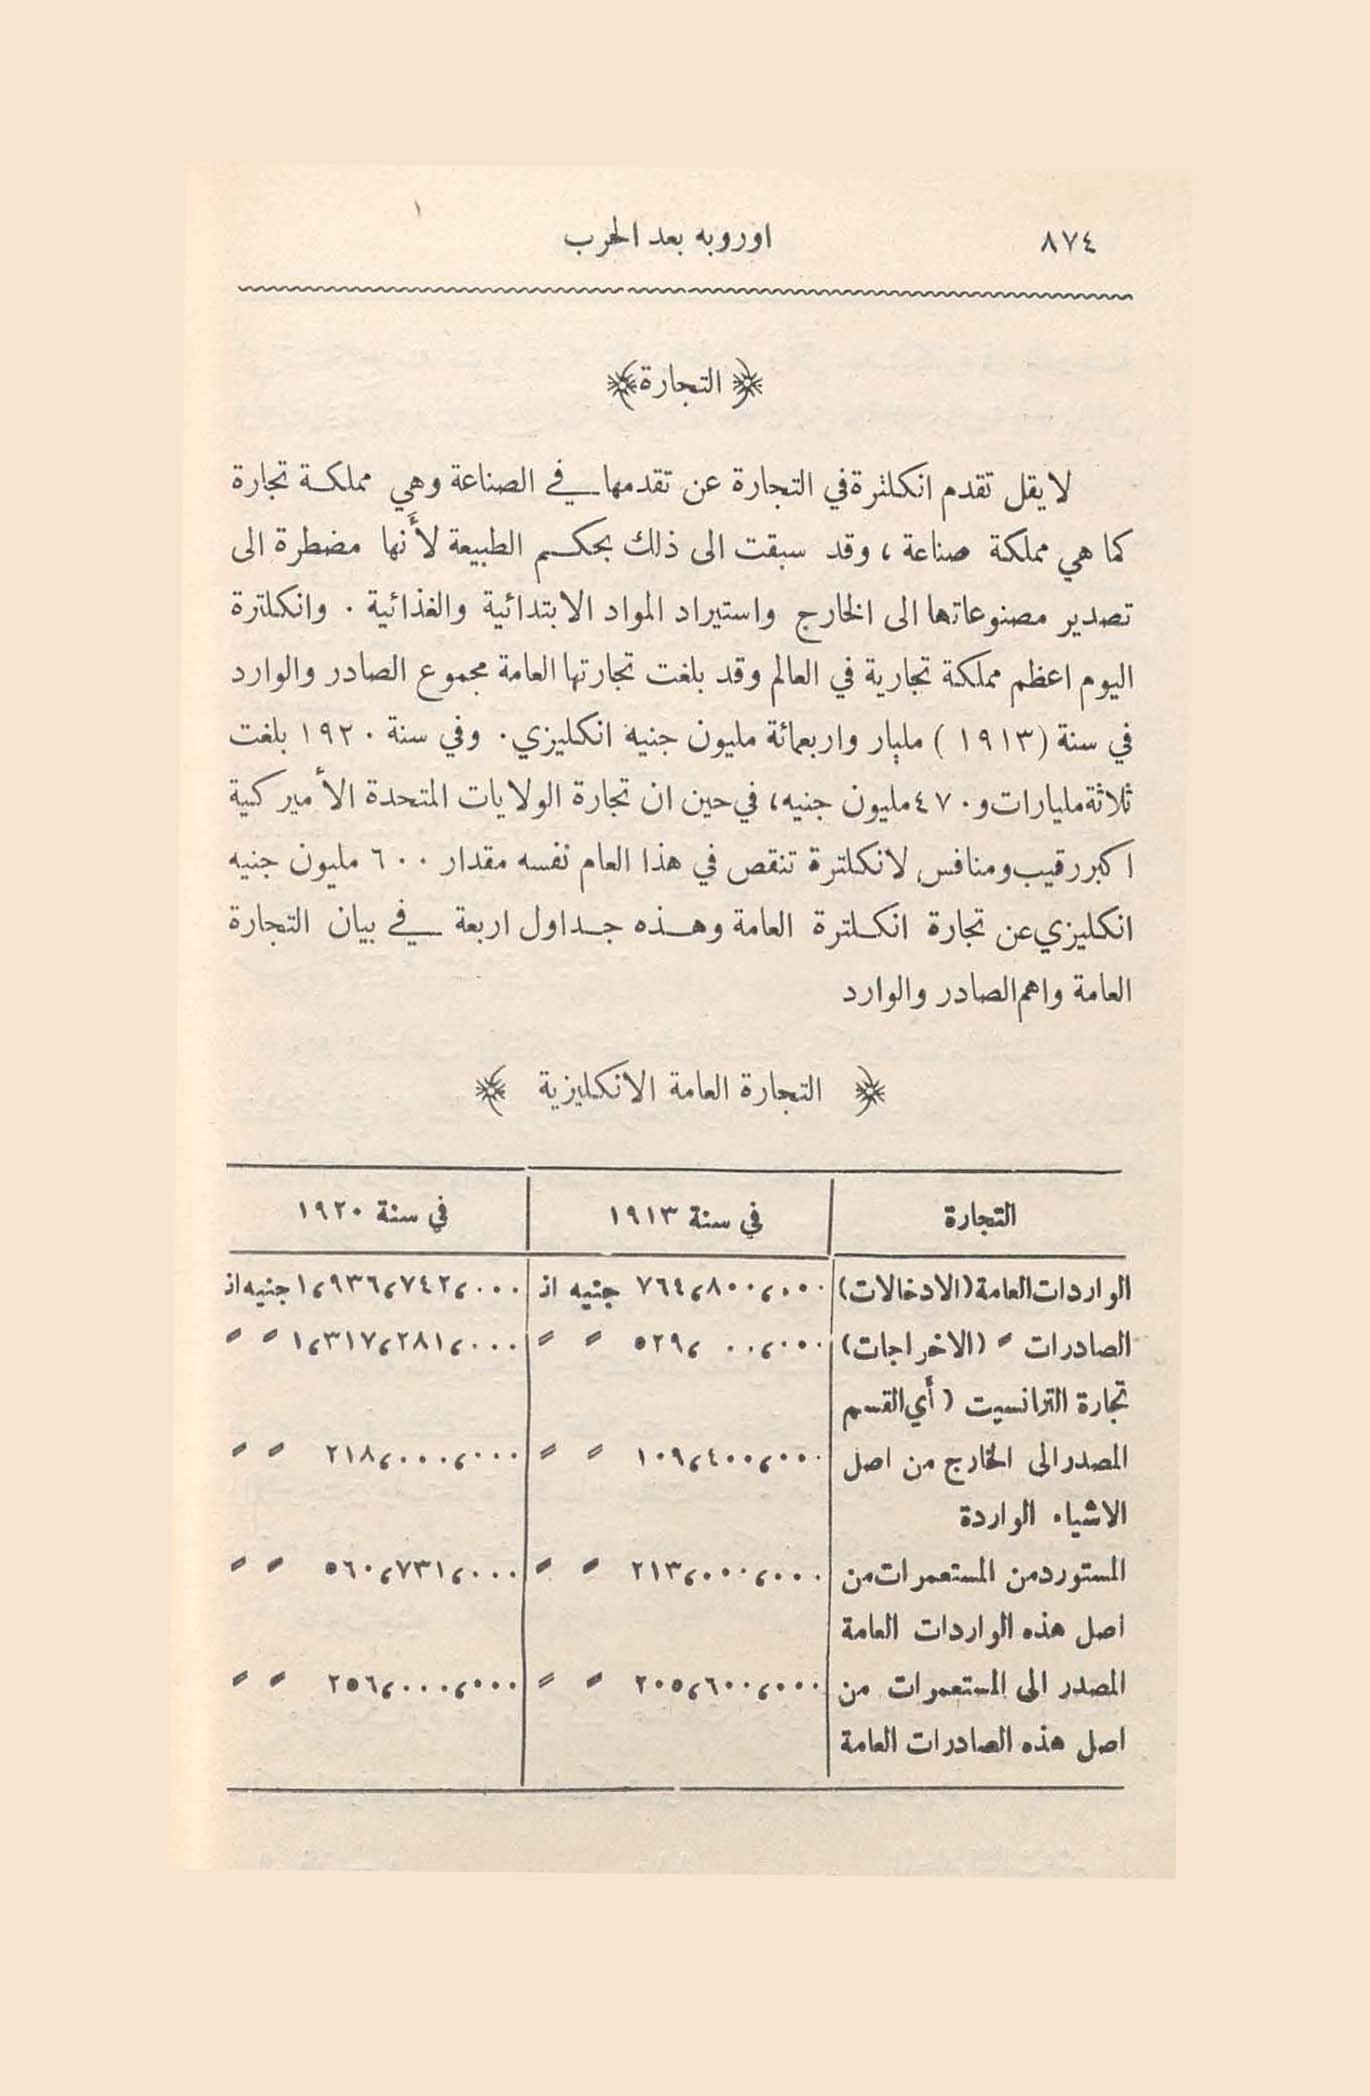 ٨٧٤
اوروبه بعد الحرب
التجارة
لا يقل تقدم انكلترة في التجارة عن تقدمها في الصناعة وهي مملكة تجارة
كما هي مملكة صناعة ، وقد سبقت الى ذلك بحكم الطبيعة لأنها مضطرة الى
تصدير مصنوعاتها الى الخارج واستيراد المواد الابتدائية والغذائية . وانكلترة
اليوم اعظم مملكة تجارية في العالم وقد بلغت تجارتها العامة مجموع الصادر والوارد
في سنة (١٩١٣) مليار واربعمائة مليون جنيه انكليزي . وفي سنة ١٩٢٠ بلغت
ثلاثة مليارات و ٤٧٠ مليون جنيه ، في حين ان تجارة الولايات المتحدة الأميركية
اكبر رقيب ومنافس لانكلترة تنقص في هذا العام نفسه مقدار ٦٠٠ مليون جنيه
انكليزي عن تجارة انكلترة العامة وهذه جداول اربعة في بيان التجارة
العامة واهم الصادر والوارد
التجارة العامة الانكليزية
التجارة في سنة ١٩١٣ في سنة ١٩٢٠
الواردات العامة (الادخالات) ٧٦٤،٨٠٠،٠٠٠ جنيه انـ ١،٩٣٦،٧٤٢،٠٠٠ جنيه انـ
الصادرات " (الاخراجات) ٥٢٩، ٠٠،٠٠٠ " " ١،٣١٧،٢٨١،٠٠٠ " "
تجارة الترانسيت (أي القسم
المصدر الى الخارج من اصل ١٠٩،٤٠٠،٠٠٠ " " ٢١٨،٠٠٠،٠٠٠ " "
الاشياء الواردة
المستورد من المستعمرات من ٢١٣،٠٠٠،٠٠٠ " " ٥٦٠،٧٣١،٠٠٠ " "
اصل هذه الواردات العامة
المصدر الى المستعمرات من ٢٠٥،٦٠٠،٠٠٠ " " ٢٥٦،٠٠٠،٠٠٠ " "
اصل هذه الصادرات العامة